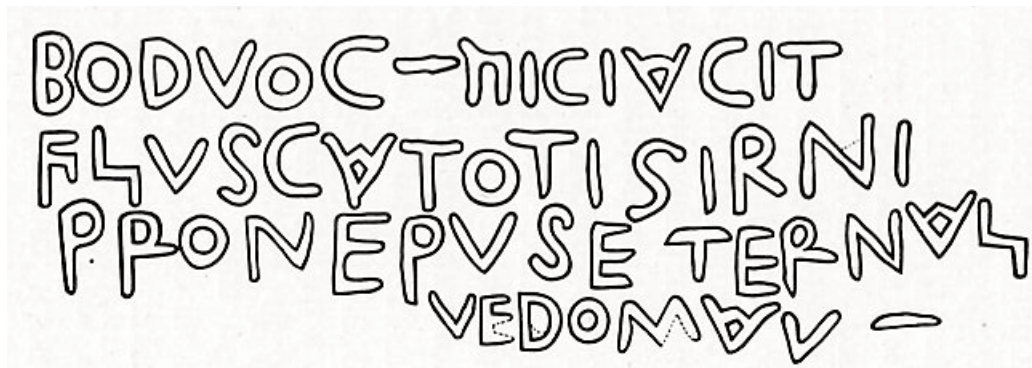 BODVOCIHICIACIT
FILIVSCATOTIGIRNI
PRONEPVSE TERNALI
VEDOMAVI